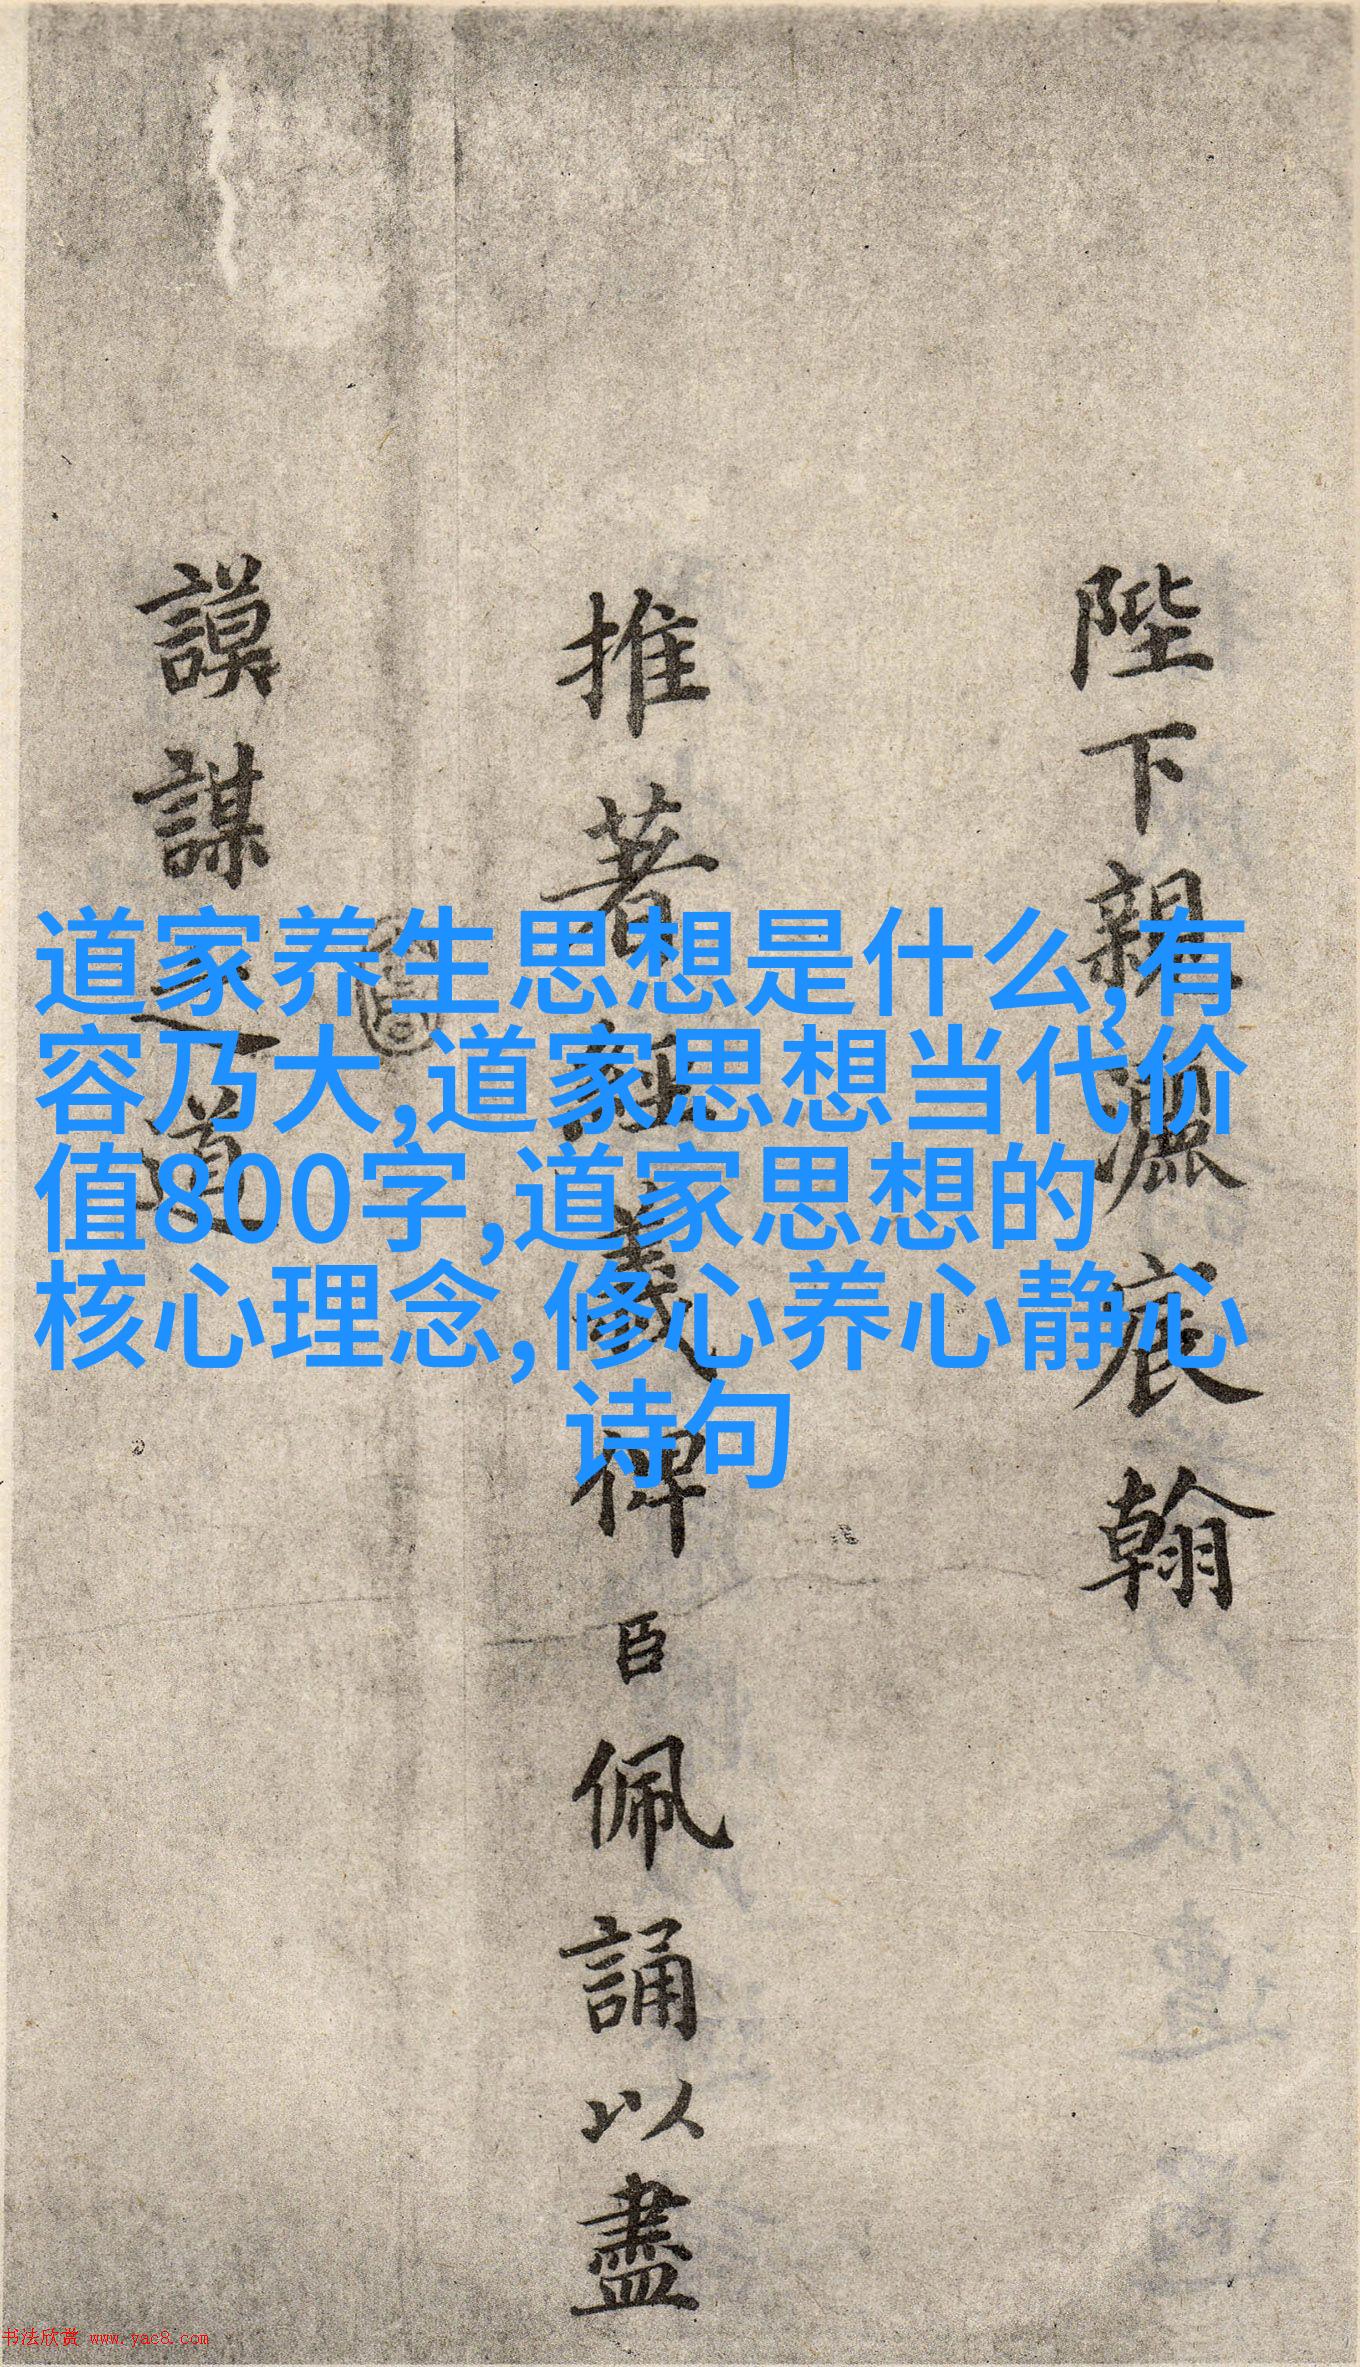 陛下親灑宸翰
推著經義俾臣佩誦以盡
謨謀之道
道家养生思想是什么,有
容乃大,道家思想当代价
值800字,道家思想的
核心理念,修心养心静心
诗句
书法欣赏 www.yac8.com